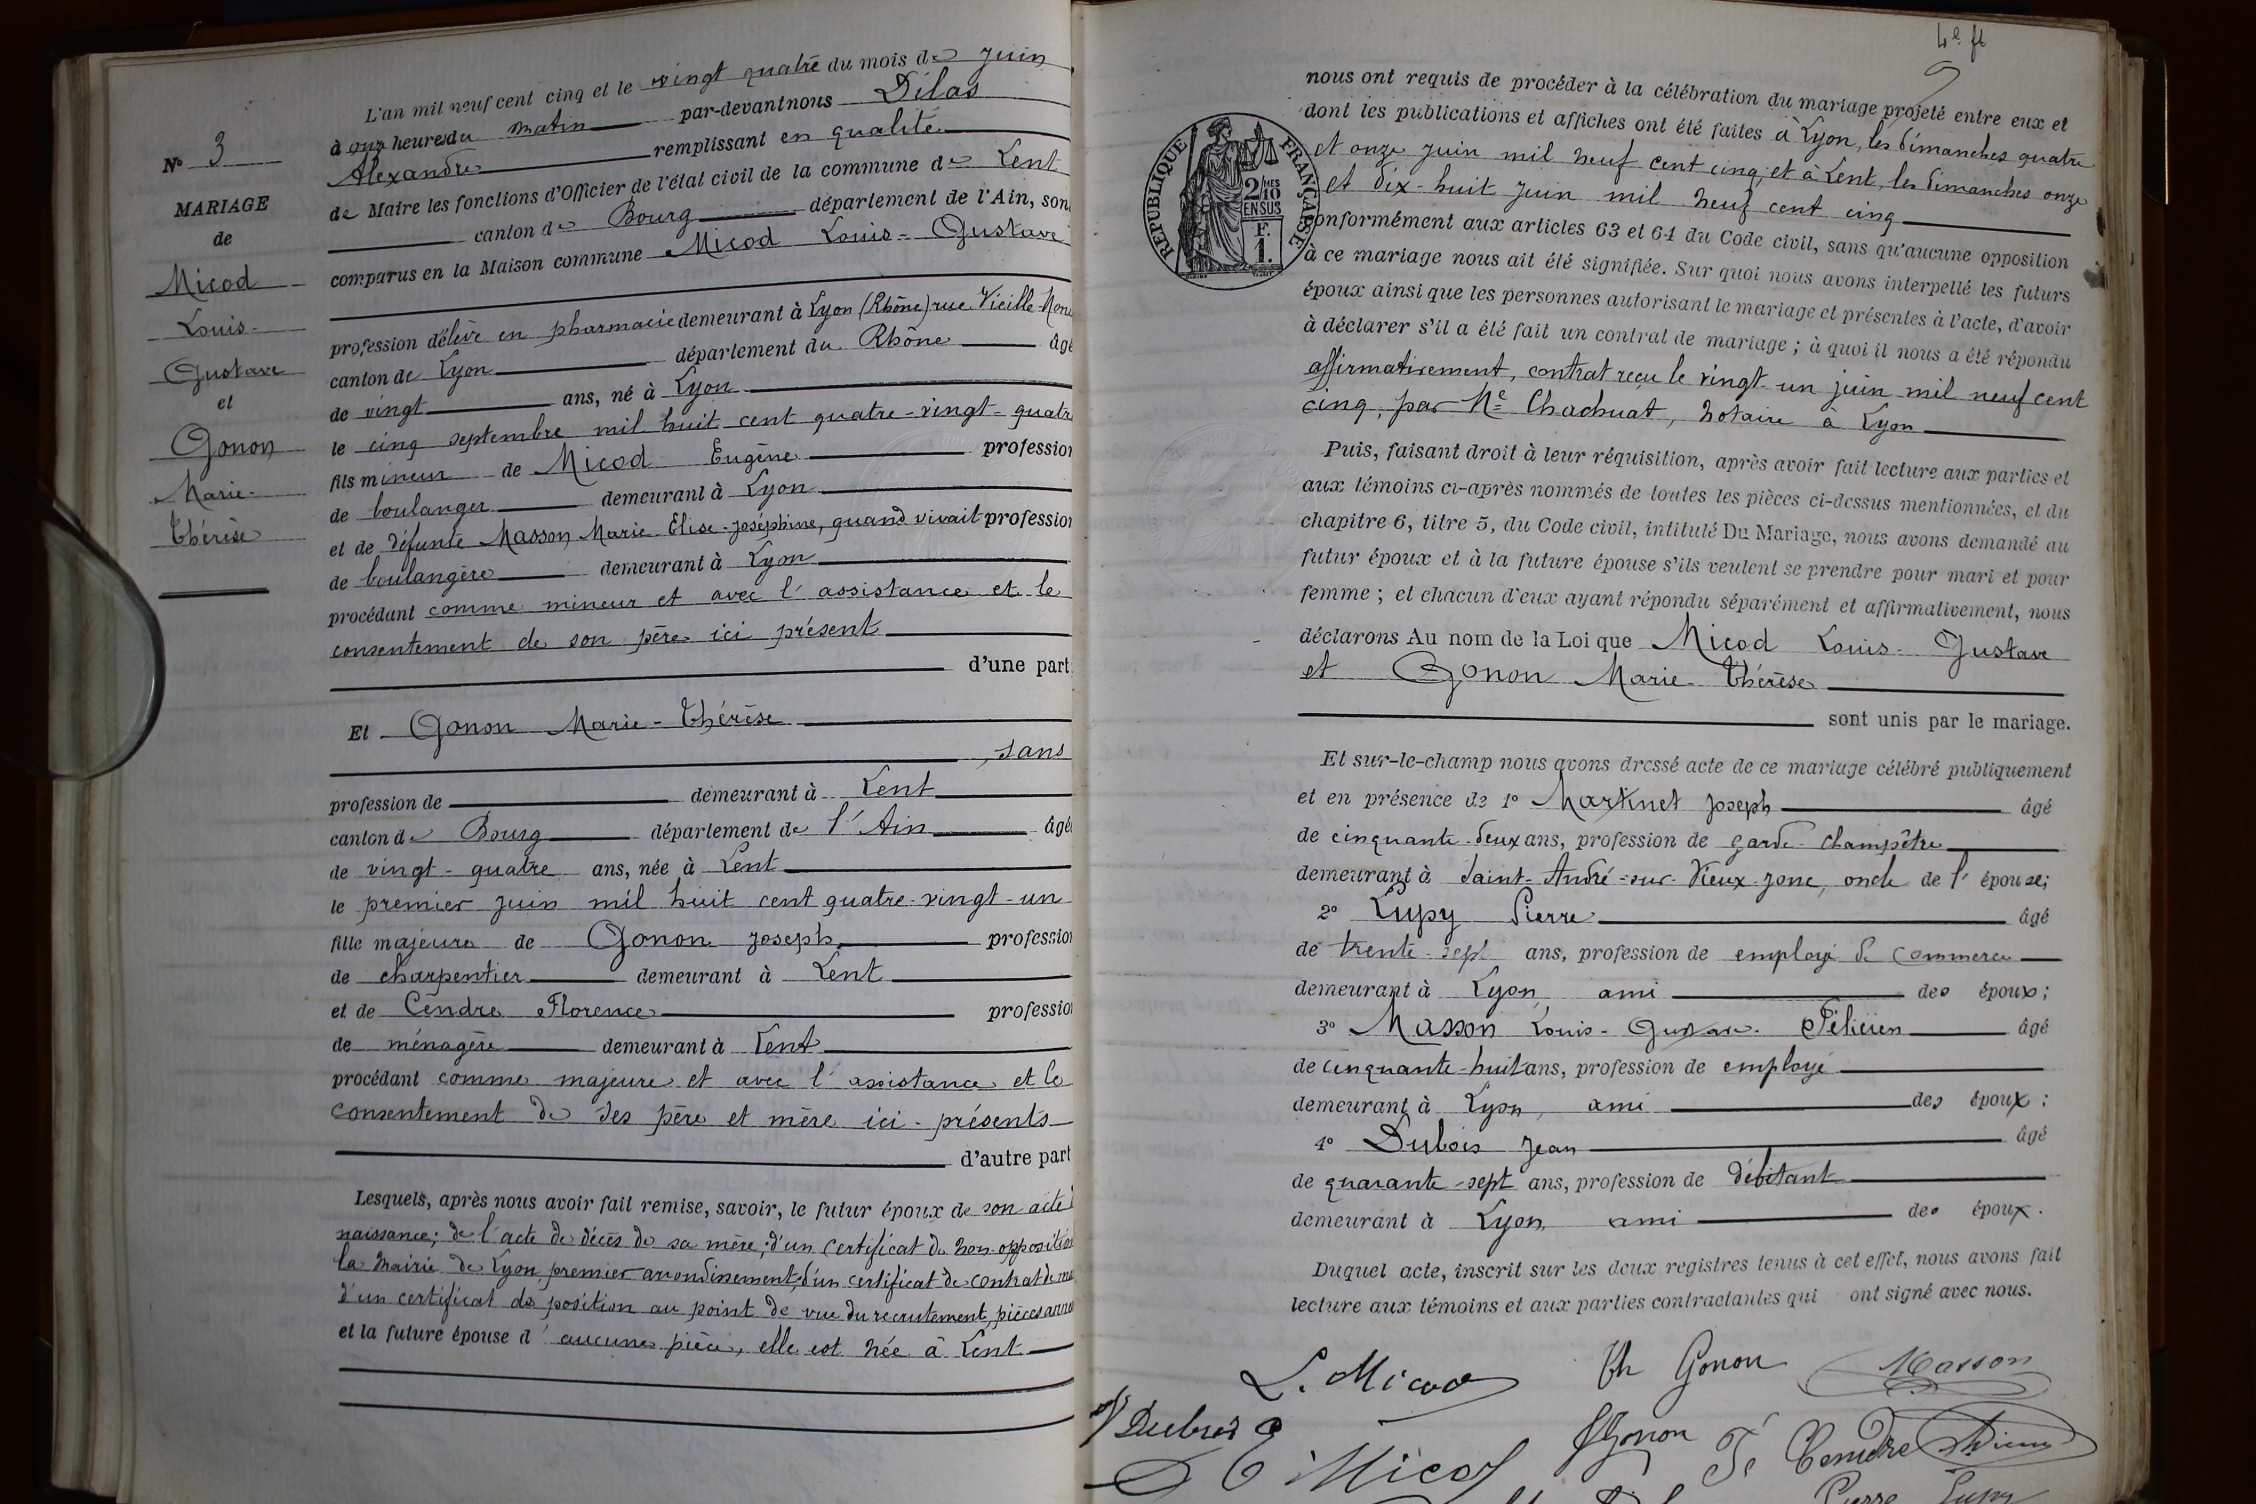 L'an mil neuf cent cinq et le vingt quatre du mois de Juin
à onze heures du matin par-devant nous Dilas
Alexandre remplissant en qualité
de Maire les fonctions d'Officier de l'état civil de la commune de Lent
canton de Bourg département de l'Ain, son
comparus en la Maison commune Micod Louis-Gustave
profession d'élève en pharmacie demeurant à Lyon (Rhône) rue Vieille-Monn
canton de Lyon département du Rhône âgé
de vingt ans, né à Lyon
le cinq septembre mil huit cent quatre-vingt-quatre
fils mineur de Micod Eugène profession
de boulanger demeurant à Lyon
et de défunte Masson Marie-Elise-Joséphine, quand vivait profession
de boulangère demeurant à Lyon
procédant comme mineur et avec l'assistance et le
consentement de son père ici présent
d'une part
Nº 3
MARIAGE
de
Micod
Louis-
Gustave
et
Gonon
Marie-
Thérèse
Et Gonon Marie-Thérèse
, sans
profession de demeurant à Lent
canton de Bourg département de l'Ain âgé
de vingt-quatre ans, née à Lent
le premier juin mil huit cent quatre-vingt-un
fille majeure de Gonon Joseph profession
de charpentier demeurant à Lent
et de Cendre Florence profession
de ménagère demeurant à Lent
procédant comme majeure et avec l'assistance et le
consentement de ses père et mère ici-présents
d'autre part
Lesquels, après nous avoir fait remise, savoir, le futur époux de son acte d
naissance; de l'acte de décès de sa mère; d'un certificat de non-opposition
la mairie de Lyon premier arrondissement; d'un certificat de contrat de ma
d'un certificat de position au point de vue du recrutement, pièces anne
et la future épouse d'aucune pièce, elle est née à Lent
4e ft
nous ont requis de procéder à la célébration du mariage projeté entre eux et
dont les publications et affiches ont été faites à Lyon, les dimanches quatre
et onze juin mil neuf cent cinq, et à Lent, les dimanches onze
et dix-huit juin mil neuf cent cinq
conformément aux articles 63 et 64 du Code civil, sans qu'aucune opposition
à ce mariage nous ait été signifiée. Sur quoi nous avons interpellé les futurs
époux ainsi que les personnes autorisant le mariage et présentes à l'acte, d'avoir
à déclarer s'il a été fait un contrat de mariage ; à quoi il nous a été répondu
affirmativement, contrat reçu le vingt-un juin mil neuf cent
cinq, par Me Chachuat, notaire à Lyon
RÉPUBLIQUE FRANÇAISE
2/10
MES
EN SUS
F.
1.
Puis, faisant droit à leur réquisition, après avoir fait lecture aux parties et
aux témoins ci-après nommés de toutes les pièces ci-dessus mentionnées, et du
chapitre 6, titre 5, du Code civil, intitulé Du Mariage, nous avons demandé au
futur époux et à la future épouse s'ils veulent se prendre pour mari et pour
femme ; et chacun d'eux ayant répondu séparément et affirmativement, nous
déclarons Au nom de la Loi que Micod Louis-Gustave
et Gonon Marie-Thérèse
sont unis par le mariage.
Et sur-le-champ nous avons dressé acte de ce mariage célébré publiquement
et en présence de 1º Martinet Joseph âgé
de cinquante-deux ans, profession de garde-champêtre
demeurant à Saint-André-sur-Vieux-Jonc, oncle de l'épouse;
2º Lupy Pierre âgé
de trente-sept ans, profession de employé de commerce
demeurant à Lyon ami des époux;
3º Masson Louis-Gustave-Félicien âgé
de cinquante-huit ans, profession de employé
demeurant à Lyon, ami des époux:
4º Dubois Jean âgé
de quarante-sept ans, profession de débitant
demeurant à Lyon ami des époux.
Duquel acte, inscrit sur les deux registres tenus à cet effet, nous avons fait
lecture aux témoins et aux parties contractantes qui ont signé avec nous.
L. Micod Th Gonon Masson
Dubois E Micod Gonon Cendre
Pierre Lupy